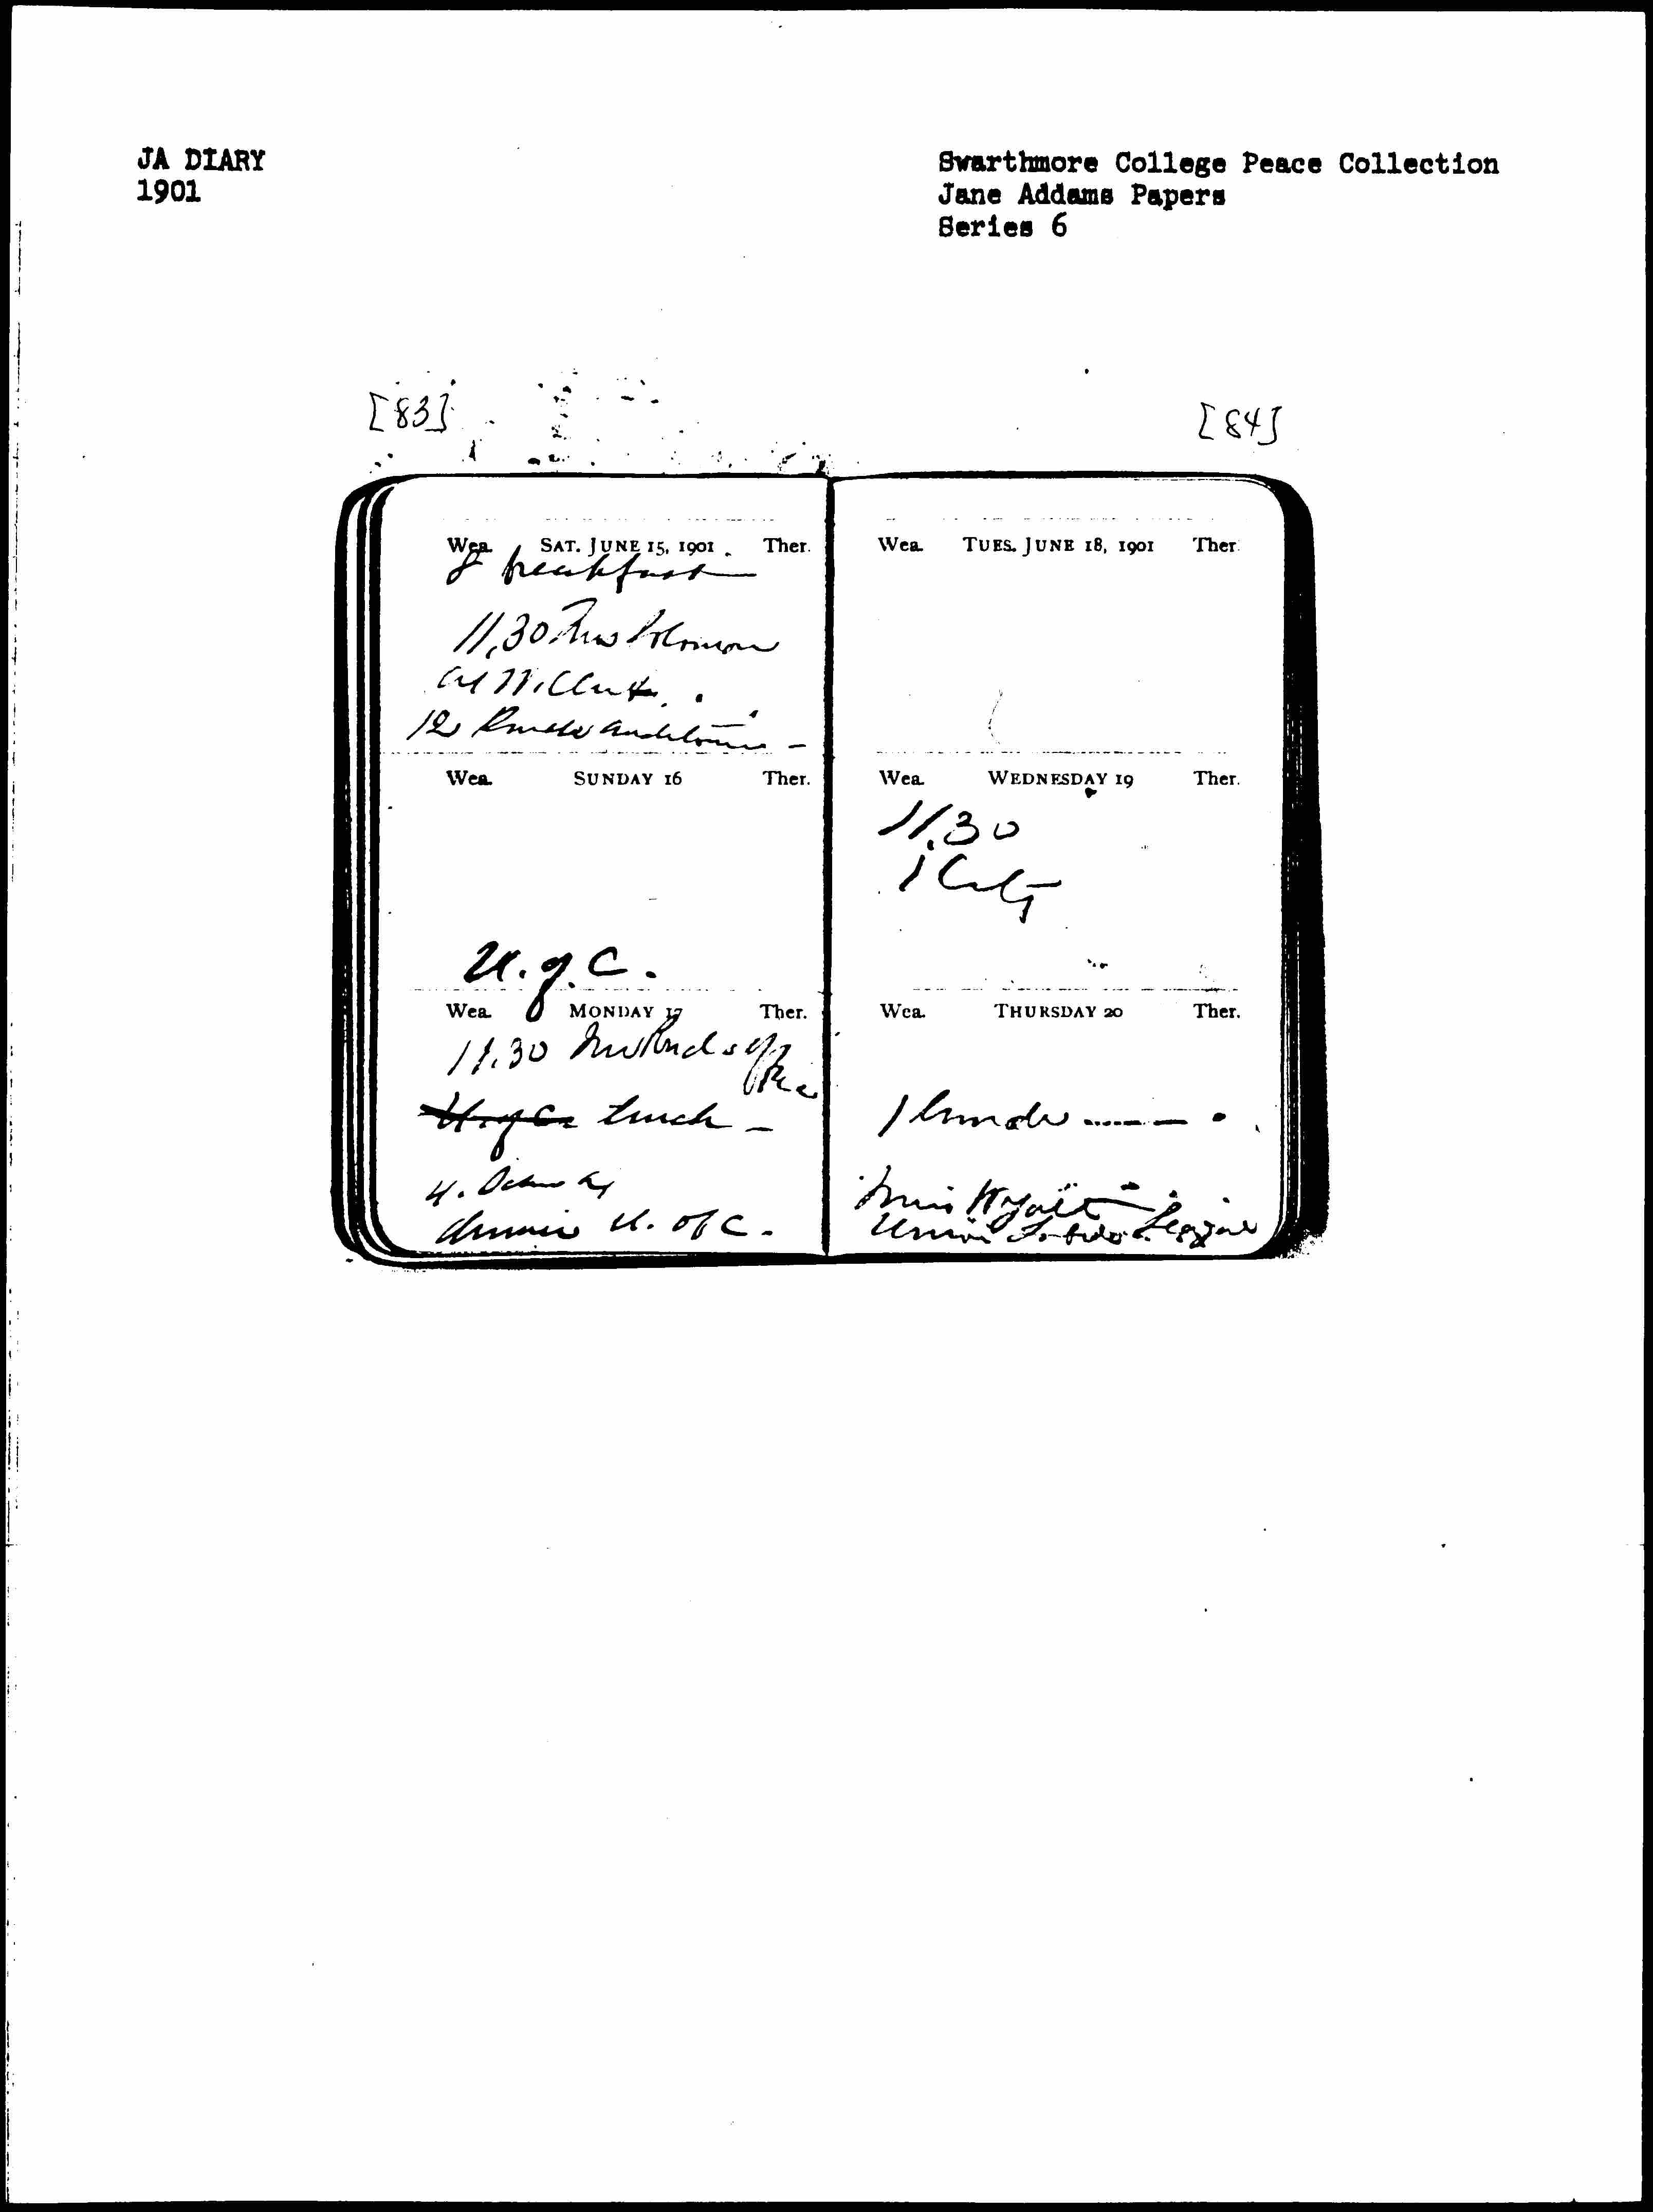 JA DIARY
1901
Swarthmore College Peace Collection
Jane Addams Papers
Series 6
[83]
[84]
Wea. SAT. JUNE 15, 1901 Ther.
8 breakfast
11,30 Mrs Solomon
at W. Club
12 lunch auditorium -
Wea. SUNDAY 16 Ther.
U. of C.
Wea. MONDAY 17 Ther.
11.30 office
U. of C. lunch -
4.
dinner U. of C.
Wea. TUES. JUNE 18, 1901 Ther.
Wea. WEDNESDAY 19 Ther.
11.30
1 City
Wea. THURSDAY 20 Ther.
1 lunch
Miss Wyatt -
Union Label League